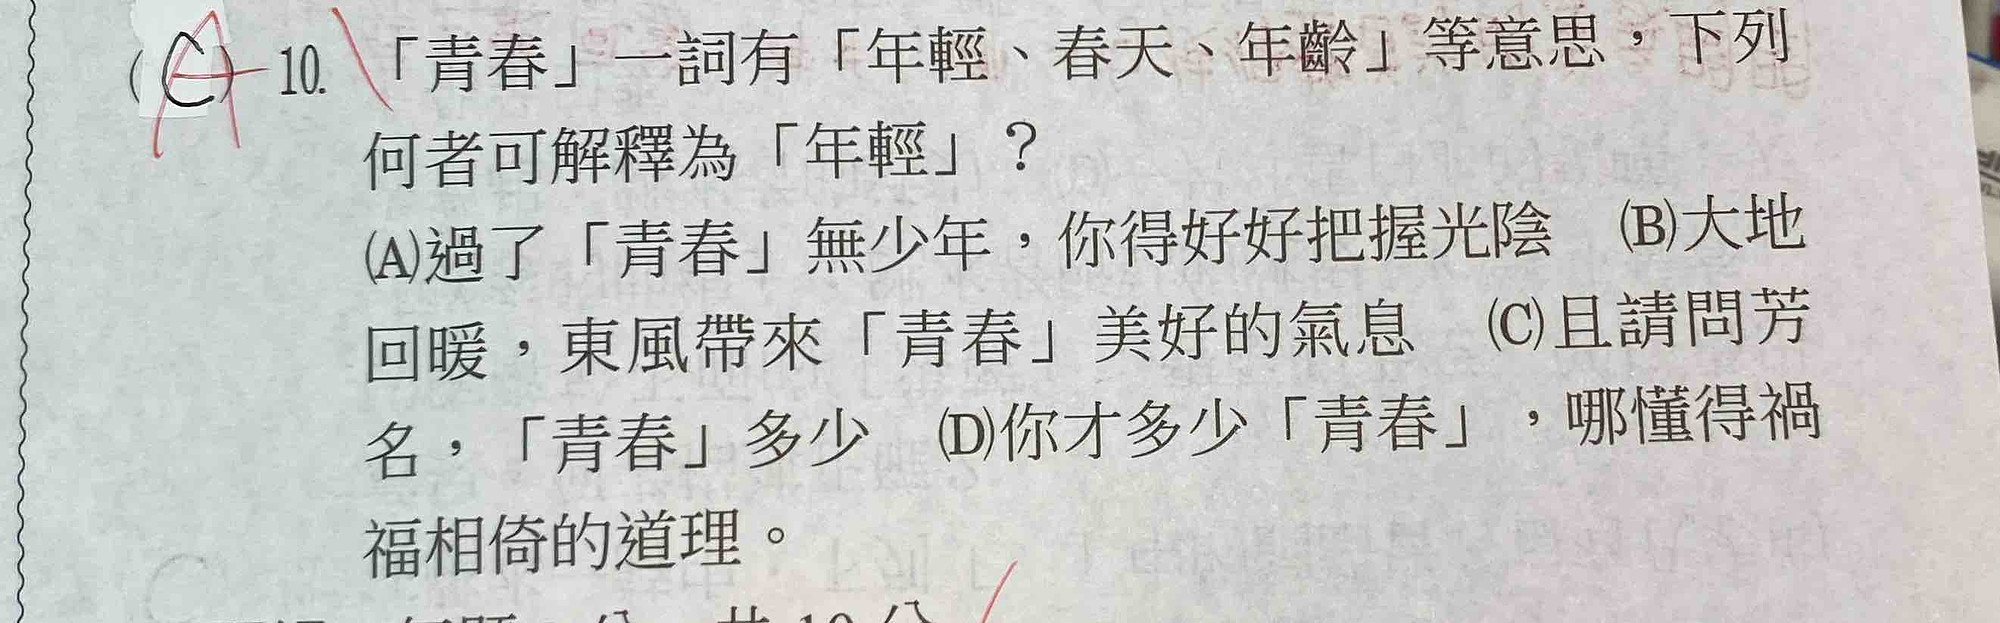 (C) A 10.「青春」一詞有「年輕、春天、年齡」等意思，下列
何者可解釋為「年輕」？
(A)過了「青春」無少年，你得好好把握光陰　(B)大地
回暖，東風帶來「青春」美好的氣息　(C)且請問芳
名，「青春」多少　(D)你才多少「青春」，哪懂得禍
福相倚的道理。